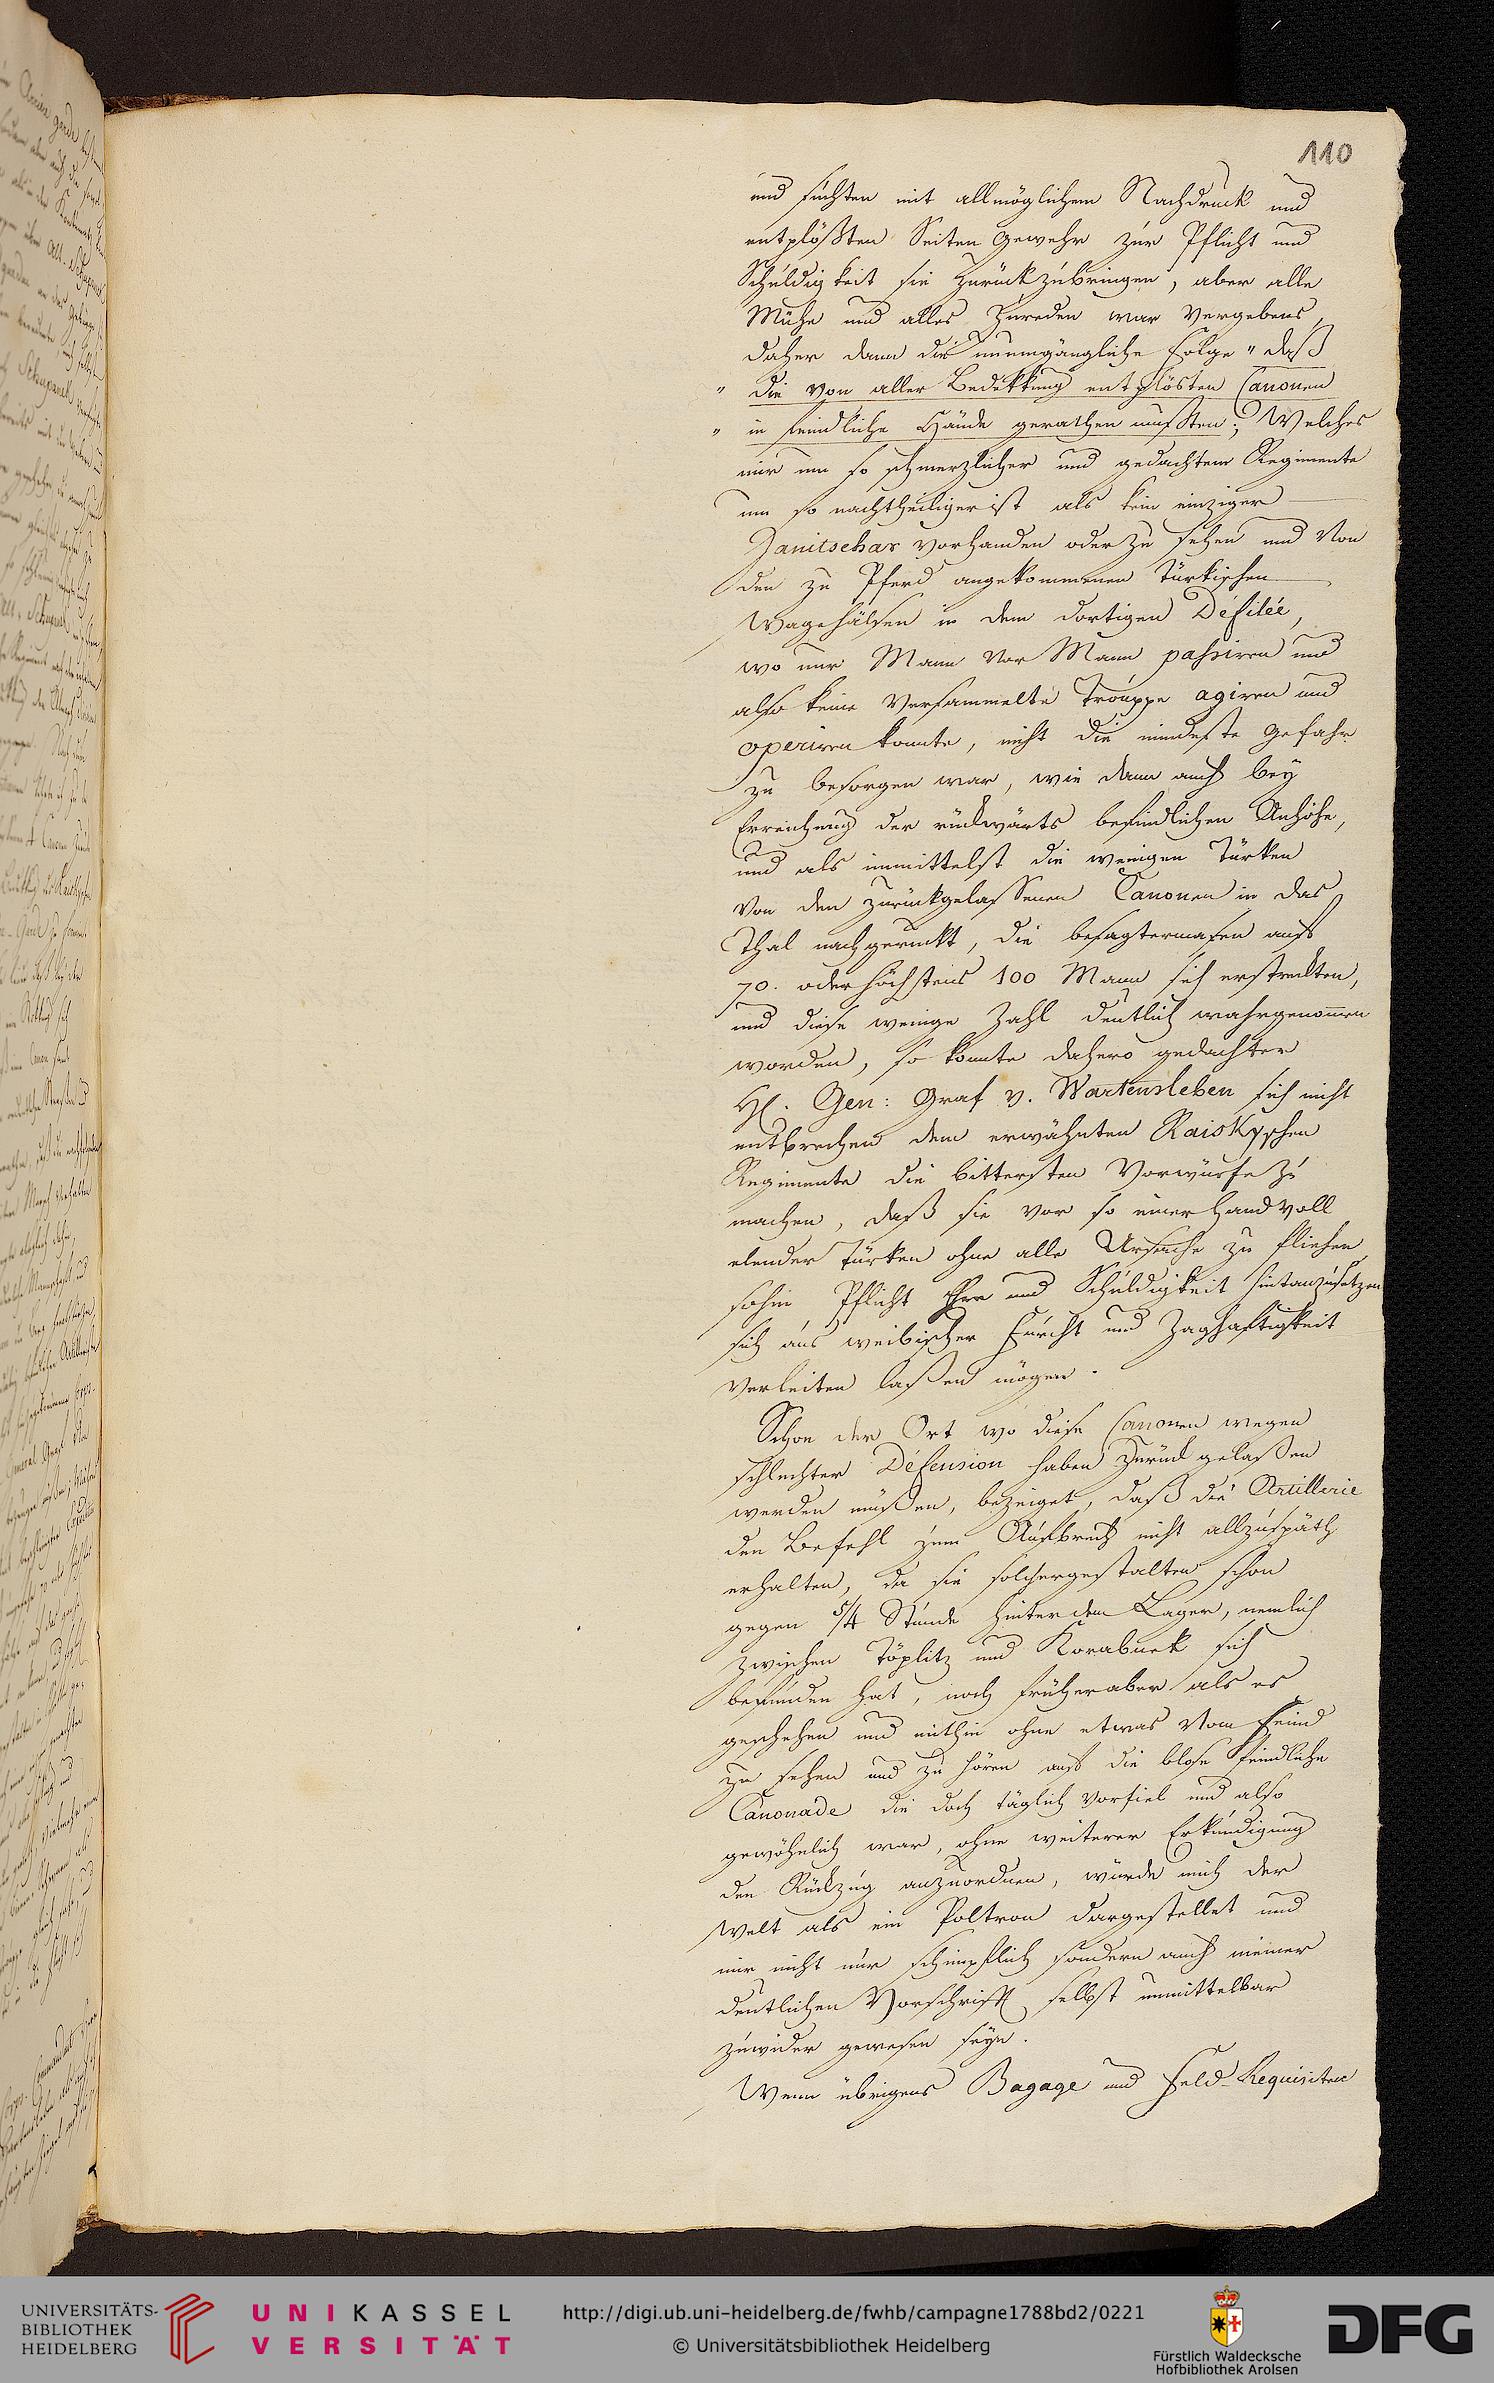 110
und suchten mit allmöglichem Nachdruck und
entplößten Seiten Gewehr zur Pflicht und
Schuldigkeit sie zurückzubringen, aber alle
Mühe und alles Zureden war vergebens,
daher dann die unumgängliche Folge " daß
" die von aller Bedekkung entplösten Canonen
" in feindliche Hände gerathen mußten; Welches
mir um so schmerzlicher und gedachtem Regimente
um so nachtheiliger ist als kein einziger
Janitschar vorhanden oder zu sehen und von
den zu Pferd angekommenen Türkischen
Wagehälsen in dem dortigen Défilée,
wo nur Mann vor Mann passiren und
also keine versammelte Trouppe agiren und
operiren konnte, nicht die mindeste Gefahr
zu besorgen war, wie dann auch bey
Erreichung der rückwärts befindlichen Anhöhe,
und als immittelst die wenigen Türken
von den zurückgelassenen Canonen in das
Thal nachgerückt, die besagtermasen auf
70. oder höchstens 100 Mann sich erstreckten,
und diese wenige Zahl deutlich wahrgenommen
worden, so konnte dahero gedachter
H. Gen: Graf v. Wartensleben sich nicht
entbrechen dem erwähnten Raiskyschen
Regimente die bittersten Vorwürfe zu
machen, daß sie vor so einer Handvoll
elender Türken ohne alle Ursache zu fliehen
sohin Pflicht Ehre und Schuldigkeit hintanzusetzen
sich aus weibischer Furcht und Zaghaftigkeit
verleiten laßen mögen.
Schon der Ort wo diese Canonen wegen
schlechter Défension haben zurück gelaßen
werden müßen, bezeiget, daß die Artillerie
den Befehl zum Aufbruch nicht allzuspäth
erhalten, da sie solchergestalten schon
gegen 5/4 Stunde hinter dem Lager, nemlich
zwischen Töplitz und Korabnek sich
befunden hat, noch früher aber als es
geschehen und mithin ohne etwas vom Feind
zu sehen und zu hören auf die blose feindliche
Canonade die doch täglich vorfiel und also
gewöhnlich war, ohne weiterer Erkundigung
den Rückzug anzuordnen, würde mich der
Welt als ein Poltron dargestellet und
mir nicht nur schimpflich sondern auch meiner
deutlichen Vorschrift selbst unmittelbar
zuwider gewesen seyn.
Wenn übrigens Bagage und Feld-Requisiten
UNIVERSITÄTS-
BIBLIOTHEK
HEIDELBERG
UNIKASSEL
VERSITÄT
http://digi.ub.uni-heidelberg.de/fwhb/campagne1788bd2/0221
© Universitätsbibliothek Heidelberg
Fürstlich Waldecksche
Hofbibliothek Arolsen
DFG